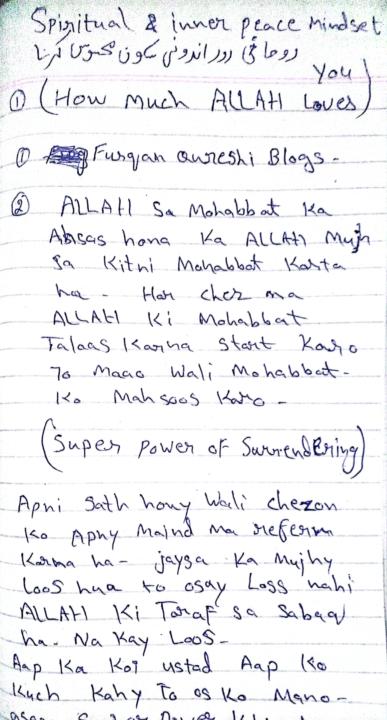 Spiritual & inner peace Mindset
روحانی اور اندرونی سکون محسوس کرنا
① (How Much ALLAH Loves You)
① Furqan Qureshi Blogs -
② ALLAH Sa Mohabbat Ka
Ahsas hona Ka ALLAH Mujh
Sa Kitni Mohabbat Karta
ha - Har chez ma
ALLAH Ki Mohabbat
Talaas Karna Start Karo
70 Maao Wali Mohabbat -
Ko Mahsoos Karo -
(Super Power of SurrendEring)
Apni Sath hony Wali chezon
Ko Apny Maind Ma referm
Karna ha - jaysa Ka Mujhy
Loos hua to osay Loss nahi
ALLAH Ki Taraf Sa Sabaq
ha. Na Kay Loos -
Aap Ka Koi ustad Aap Ko
Kuch Kahy To os Ko Mano -